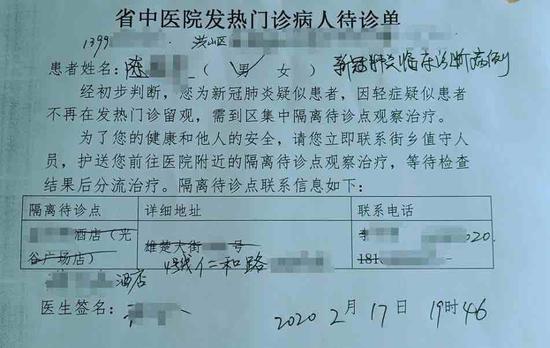 省中医院发热门诊病人待诊单
1399 洪山区
患者姓名:陈 (男 女) 新冠肺炎临床诊断病例
经初步判断,您为新冠肺炎疑似患者,因轻症疑似患者
不再在发热门诊留观,需到区集中隔离待诊点观察治疗。
为了您的健康和他人的安全,请您立即联系街乡值守人
员,护送您前往医院附近的隔离待诊点观察治疗,等待检查
结果后分流治疗。隔离待诊点联系信息如下:
隔离待诊点 详细地址 联系电话
酒店(光
谷广场店) 雄楚大街 号 李 020.
181
酒店 仁和路
医生签名: 2020 2月17日 19时46